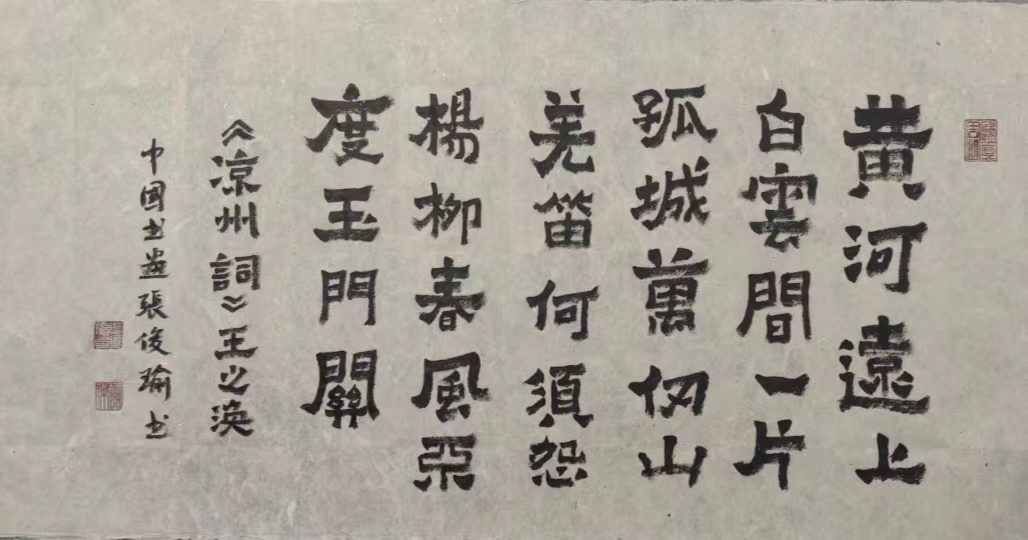 黄河遠上
白雲間一片
孤城萬仞山
羌笛何須怨
楊柳春風亞
度玉門關
《凉州詞》王之渙
中國书畫張俊瑜书